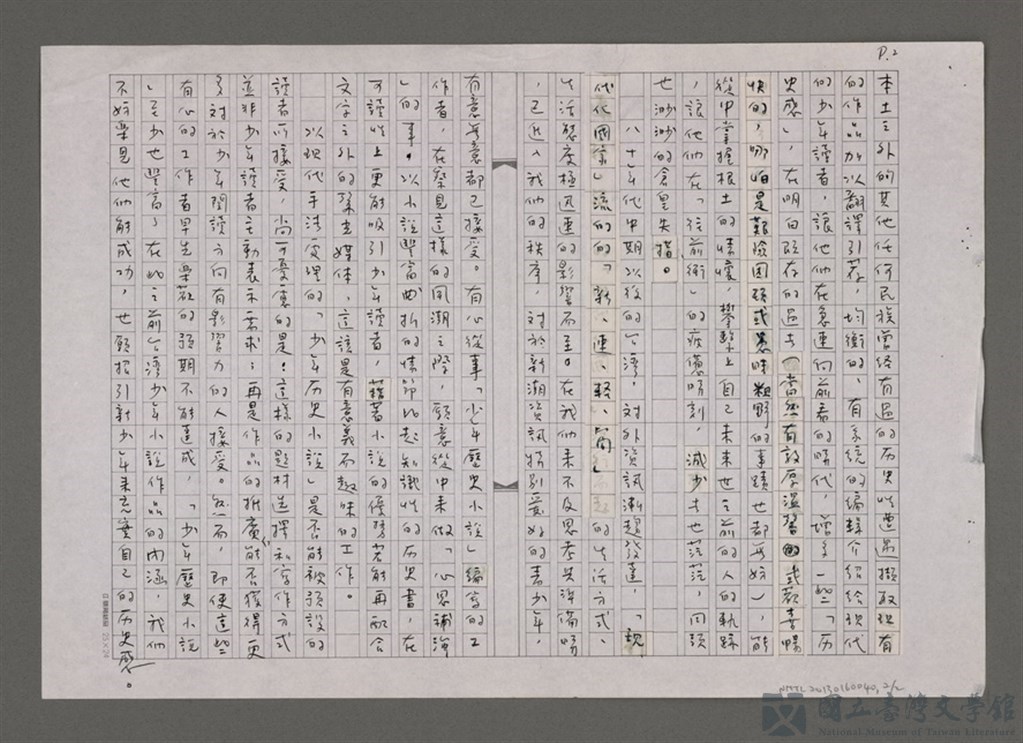 P.2
本土之外的其他任何民族曾經有過的历史性遭遇擷取現有
的作品加以翻譯引荐,均衡的、有系統的編輯介紹給現代
的少年讀者,讓他們在急速向前奔的時代,增多一些「历
史感」,在明白既存的過去(當然有敦厚溫馨的或歡喜暢
快的,哪怕是艱險困頓或愚昧粗野的事蹟也都無妨),能
從中掌握根土的情懷,攀擊上自己未來世之前的人的軌跡
,讓他們在「往前衝」的疲憊時刻,減少去也茫茫,回頭
也渺渺的倉皇失措。
八十年代中期以後的台灣,對外資訊漸趨發達,「現
代化國家」流向的「新、速、輕、簡」的生活方式、
生活態度極迅速的影響而至。在我們來不及思考與準備時
,已進入我們的秩序,對於新潮資訊特別愛好的青少年,
有意無意都已接受。有心從事「少年歷史小說」編寫的工
作者,在察見這樣的風潮之際,願意從中來做「心思補強
」的事。以小說豐富曲折的情節比起知識性的历史書,在
可讀性上更能吸引少年讀者,藉著小說的優勢若能再配合
文字之外的聲光媒体,這該是有意義而趣味的工作。
以現代手法處理的「少年历史小說」是否能被預設的
讀者所接受,尚可憂慮的是:這樣的題材選擇和寫作方式
並非少年讀者主動表示需求;再是作品的推廣能否獲得更
多對於少年閱讀方向有影響力的人接受。然而,即使這些
有心的工作者早先樂歡的預期不能達成,「少年歷史小說
」至少也豐富了在此之前台灣少年小說作品的內涵,我們
不妨樂見他們能成功,也願招引新少年來充實自己的历史感。
25×24
NMTL20130160040,2/2
國立臺灣文學館
National Museum of Taiwan Literature